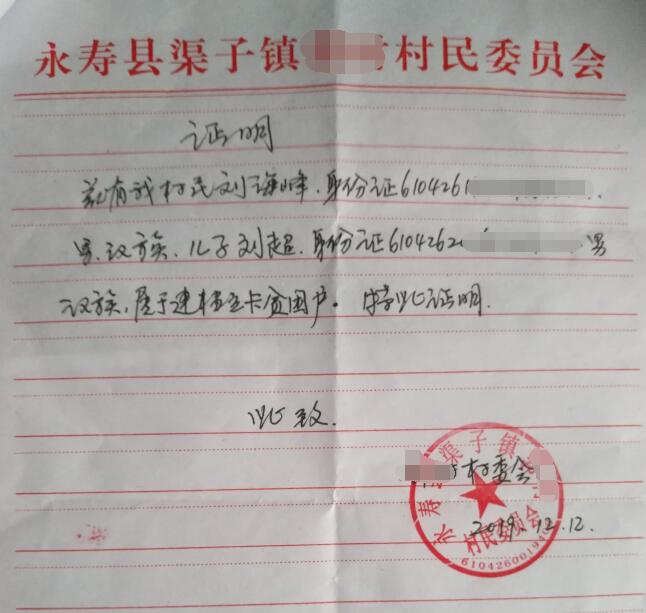 永寿县渠子镇 村民委员会
证明
兹有我村民刘海峰.身份证6104261
男、汉族、儿子刘超.身份证6104262 男
汉族,属于建档立卡贫困户. 特此证明.
此致.
村委会
2019.12.12.
永寿 渠子镇
村民委员会
61042600194